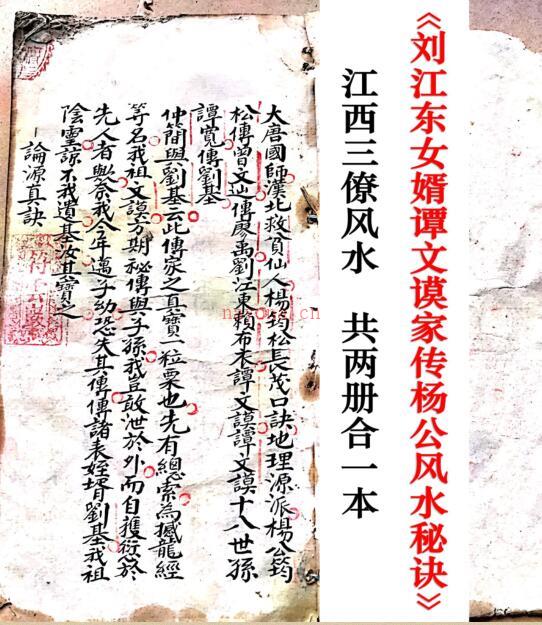 《刘江东女婿谭文谟家传杨公风水秘诀》
江西三僚风水 共两册合一本
大唐國師漢北救貧仙人楊筠松長茂口訣地理源派楊公筠
松傳曾文辿傳廖禹劉江東賴布衣譚文謨譚文謨十八世孫
譚寬傳劉基
仲簡與劉基云此傳家之真寶一粒粟也先有總索為撼龍經
等名我祖文謨方期秘傳與子孫我豈敢泄於外而自獲衍於
先人者歟奈我今年邁子幼恐失其傳傳諸表姪壻劉基我祖
陰靈諒不我遺基汝其寶之
論源真訣